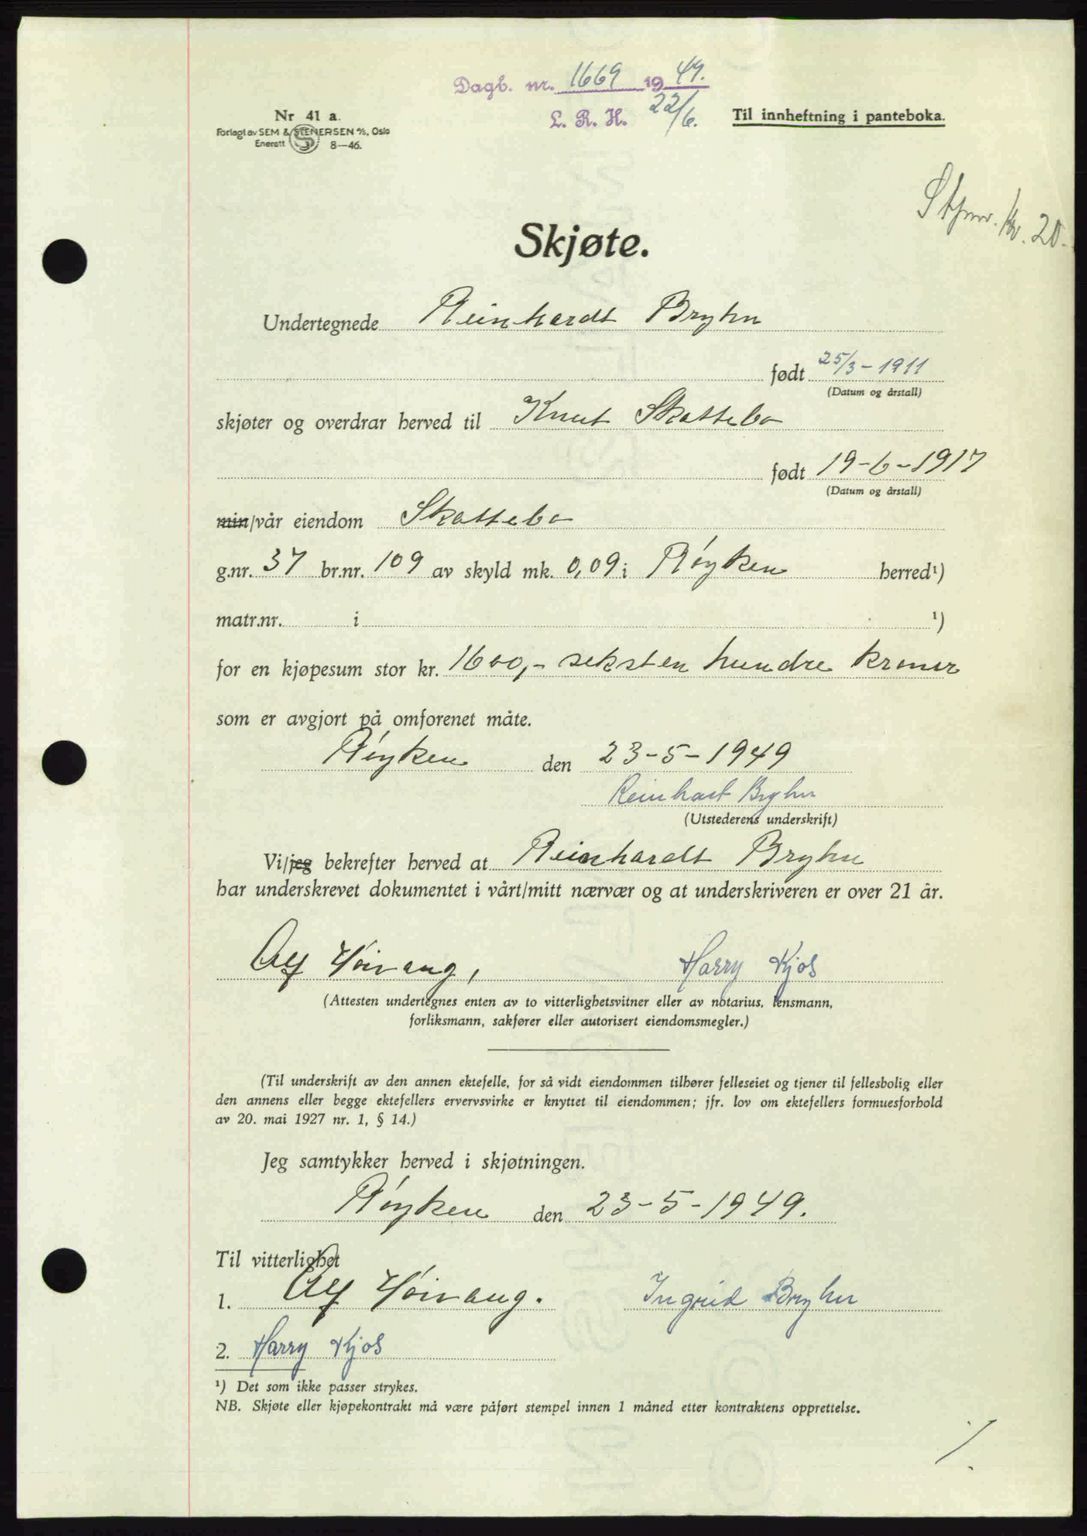 Dagb. nr. 1669 1949.
L. R. H. 22/6.
Nr 41 a.
Forlagt av SEM & STENERSEN A/S, Oslo
Enerett 8—46.
Til innheftning i panteboka.
Stpmr. kr. 20.-
Skjøte.
Undertegnede Reinhardt Bryhn
født 25/3-1911
(Datum og årstall)
skjøter og overdrar herved til Knut Skattebo
født 19-6-1917
(Datum og årstall)
min/vår eiendom Skattebo
g.nr. 37 br.nr. 109 av skyld mk. 0,09 i Røyken herred¹)
matr.nr. i ¹)
for en kjøpesum stor kr. 1600,- seksten hundre kroner
som er avgjort på omforenet måte.
Røyken den 23-5-1949
Reinhart Bryhn
(Utstederens underskrift)
Vi/jeg bekrefter herved at Reinhardt Bryhn
har underskrevet dokumentet i vårt/mitt nærvær og at underskriveren er over 21 år.
Alf Høivang, Harry Kjos
(Attesten undertegnes enten av to vitterlighetsvitner eller av notarius, lensmann,
forliksmann, sakfører eller autorisert eiendomsmegler.)
(Til underskrift av den annen ektefelle, for så vidt eiendommen tilhører felleseiet og tjener til fellesbolig eller
den annens eller begge ektefellers ervervsvirke er knyttet til eiendommen; jfr. lov om ektefellers formuesforhold
av 20. mai 1927 nr. 1, § 14.)
Jeg samtykker herved i skjøtningen.
Røyken den 23-5-1949.
Til vitterlighet
1. Alf Høivang. Ingrid Bryhn
2. Harry Kjos
¹) Det som ikke passer strykes.
NB. Skjøte eller kjøpekontrakt må være påført stempel innen 1 måned etter kontraktens opprettelse.